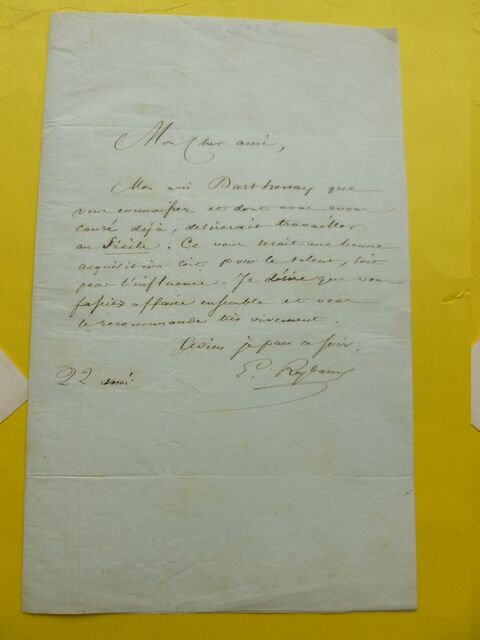 Mon cher ami,
Mon ami Parthenay que
vous connaissez et dont nous avons
causé déjà, désirerait travailler
au Siècle. Ce vous serait une bonne
acquisition soit pour le talent, soit
pour l'influence. Je désire que vous
fassiez affaire ensemble et vous
le recommande très vivement.
je pars ce soir,
22 mai
L. Reybaud